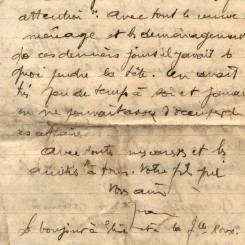 attention". Avec tout le remue
ménage et le déménagement
de ces derniers jours il y avait de
quoi perdre la tête. On avait
très peu de temps à soi et
on ne pouvait assez s'occuper de
ses affaires.
Avec toute
amitiés à tous. Votre fils qui
vous aime
Le bonjour à et à la fille